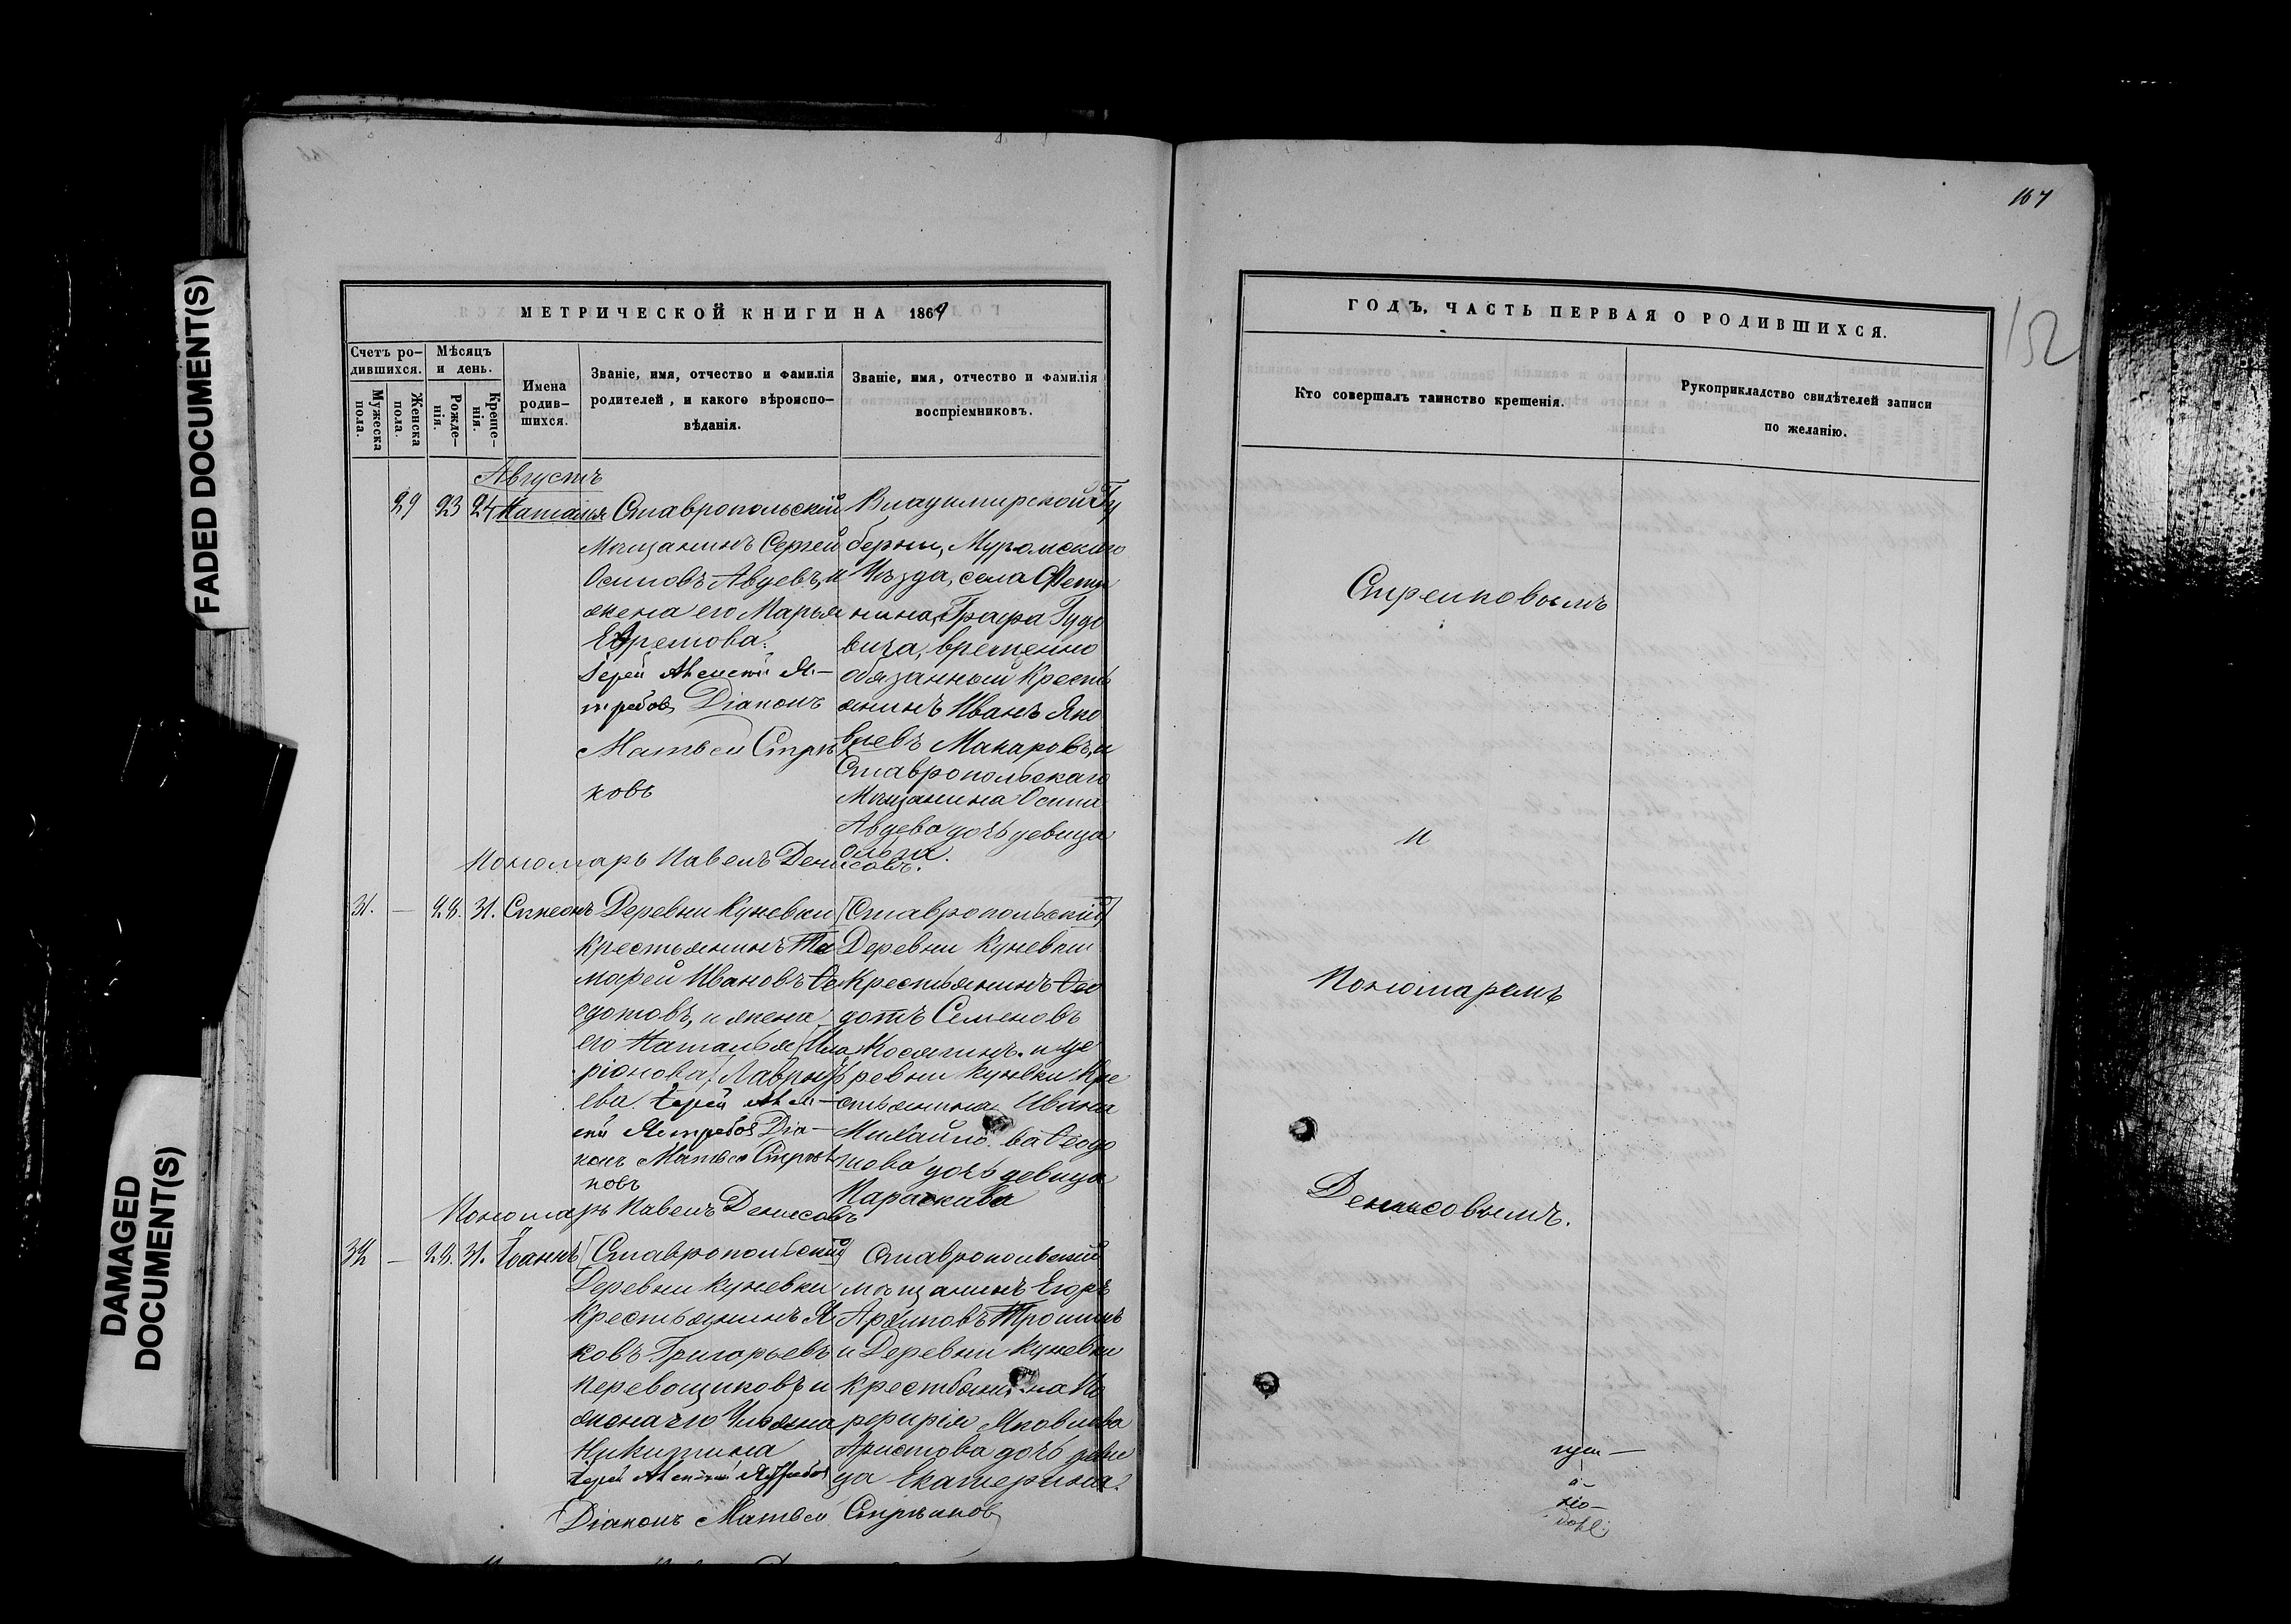 FADED DOCUMENT(S)
DAMAGED
DOCUMENT(S)
МЕТРИЧЕСКОЙ КНИГИ НА 1869
Счетъ ро-
дившихся.
Мужеска
пола.
Женска
пола.
Мѣсяцъ
и день.
Рожде-
нія.
Креще-
нія.
Имена
родив-
шихся.
Званіе, имя, отчество и фамилія
родителей, и какого вѣроиспо-
вѣданія.
Званіе, имя, отчество и фамилія
воспріемниковъ.
Августъ
29 23 24 Наталія
Ставропольскій
Мѣщанинъ Сергей
Осиповъ Авдеевъ, и
жена его Марья
Ефремова.
Іерей Алексѣй Я-
стребовъ Діаконъ
Матвей Стрѣл
ковъ
Пономарь Павелъ Денисовъ.
Владимирской Гу
берніи, Муромскаго
Уѣзда, села
Графа Гудо
вича, временно
обязанный Кресть
янинъ Иванъ Яко
влевъ Макаровъ, и
Ставропольскаго
Мѣщанина Осипа
Авдеева дочь девица
Ольга.
31. — 28. 31. Симеонъ
Деревни Куневки
Крестьянинъ
Ивановъ Ѳе
дотовъ, и жена
его Наталья (Ила
ріонова) Лаврен
ева. Іерей Алек-
сѣй Ястребовъ Діа-
конъ Матвей Стрѣл
ковъ
Пономарь Павелъ Денисовъ
[Ставропольскій]
Деревни Куневки
Крестьянинъ Ѳео
дотъ Семеновъ
и де
ревни Куневки Кре
стьянина Ивана
Михайлова
дочь девица
Параскева
32 — 28. 31. Іоаннъ
[Ставропольскій]
Деревни Куневки
Крестьянинъ Я
ковъ Григорьевъ
Перевощиковъ, и
жена его Ульяна
Никитина
Іерей Алексѣй Ястребовъ
Діаконъ Матвей Стрѣлковъ
Ставропольскій
мѣщанинъ Егоръ
Архиповъ Трошинъ
и Деревни Куневки
Крестьянина По
рфирія Яковлева
Аристова дочь деви
ца Екатерина.
167
152
ГОДЪ, ЧАСТЬ ПЕРВАЯ О РОДИВШИХСЯ.
Кто совершалъ таинство крещенія.
Рукоприкладство свидѣтелей записи
по желанію.
Стрелковымъ
и
Пономаремъ
Денисовымъ.